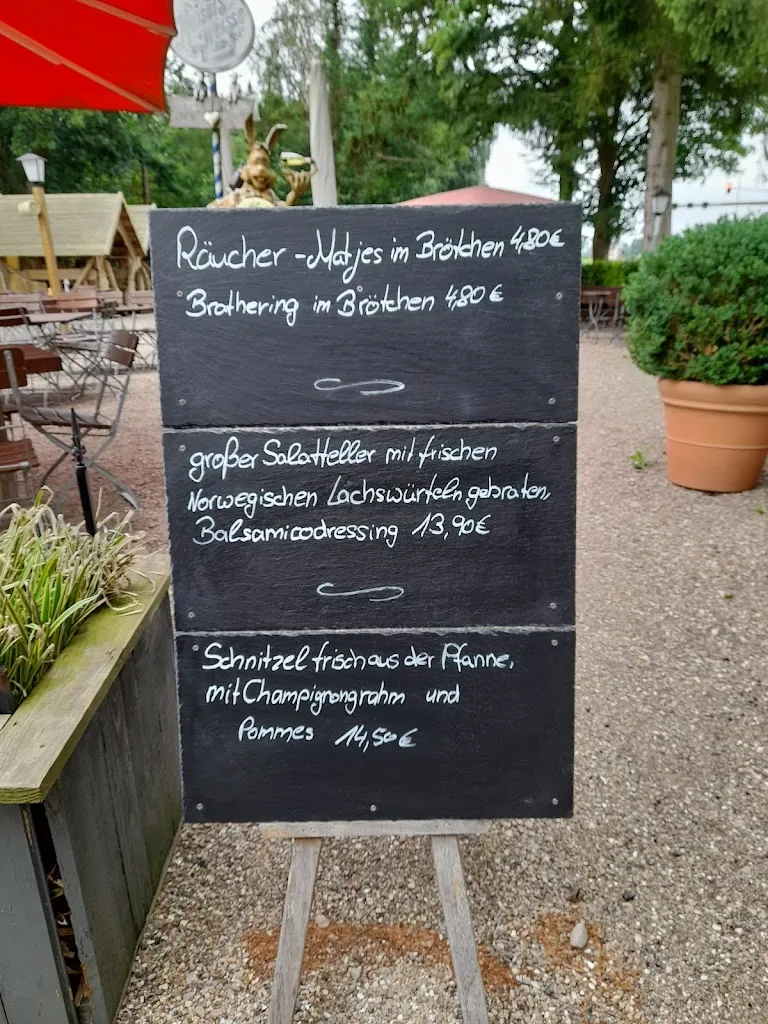 Räucher-Matjes im Brötchen 4,80€
Brathering im Brötchen 4,80€
großer Salatteller mit frischen
Norwegischen Lachswürfeln gebraten,
Balsamicodressing 13,90€
Schnitzel frisch aus der Pfanne,
mit Champignongrahm und
Pommes 14,50€